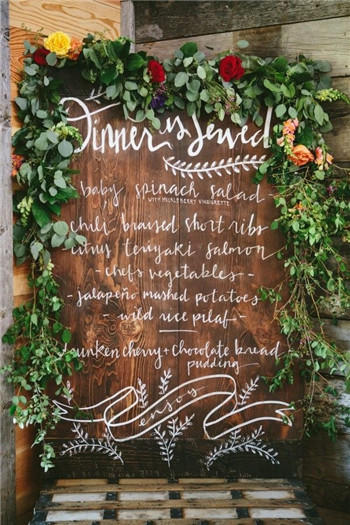 Dinner is Served
baby spinach salad
WITH HUCKLEBERRY VINAIGRETTE
chili braised short ribs
citrus teriyaki salmon
- chefs vegetables -
- jalapeño mashed potatoes
- wild rice pilaf -
drunken cherry + chocolate bread
pudding
enjoy